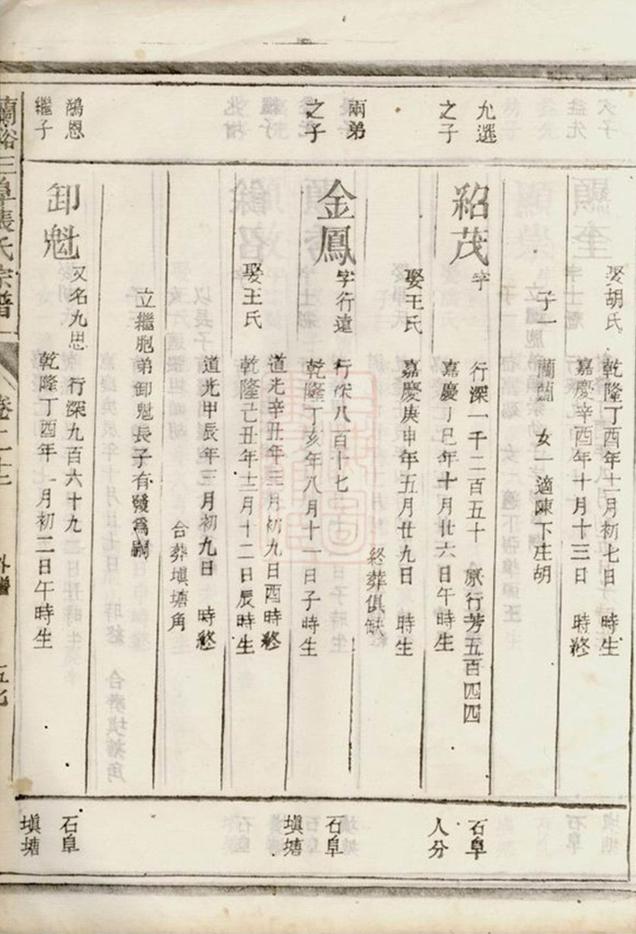 娶胡氏 乾隆丁酉年十二月初七日 時生
嘉慶辛酉年十月十三日 時終
子一 蘭蘭 女一 適陳下庄胡
允選之子
紹茂 字 行深一千二百五十 原行芳五百四四
嘉慶丁巳年十月廿六日午時生
娶王氏 嘉慶庚申年五月廿九日 時生
終葬俱缺
石阜人分
兩弟之子
金鳳 字行遠 行深八百十七
乾隆丁亥年八月十一日子時生
道光辛丑年三月初九日酉時終
娶王氏 乾隆己丑年十二月十二日辰時生
道光甲辰年三月初九日 時終
合葬塡塘角
立繼胞弟卸魁長子有發為嗣
石阜塡塘
鴻恩繼子
卸魁 又名九思 行深九百六十九
乾隆丁酉年 月初二日午時生
石阜塡塘
張氏宗譜